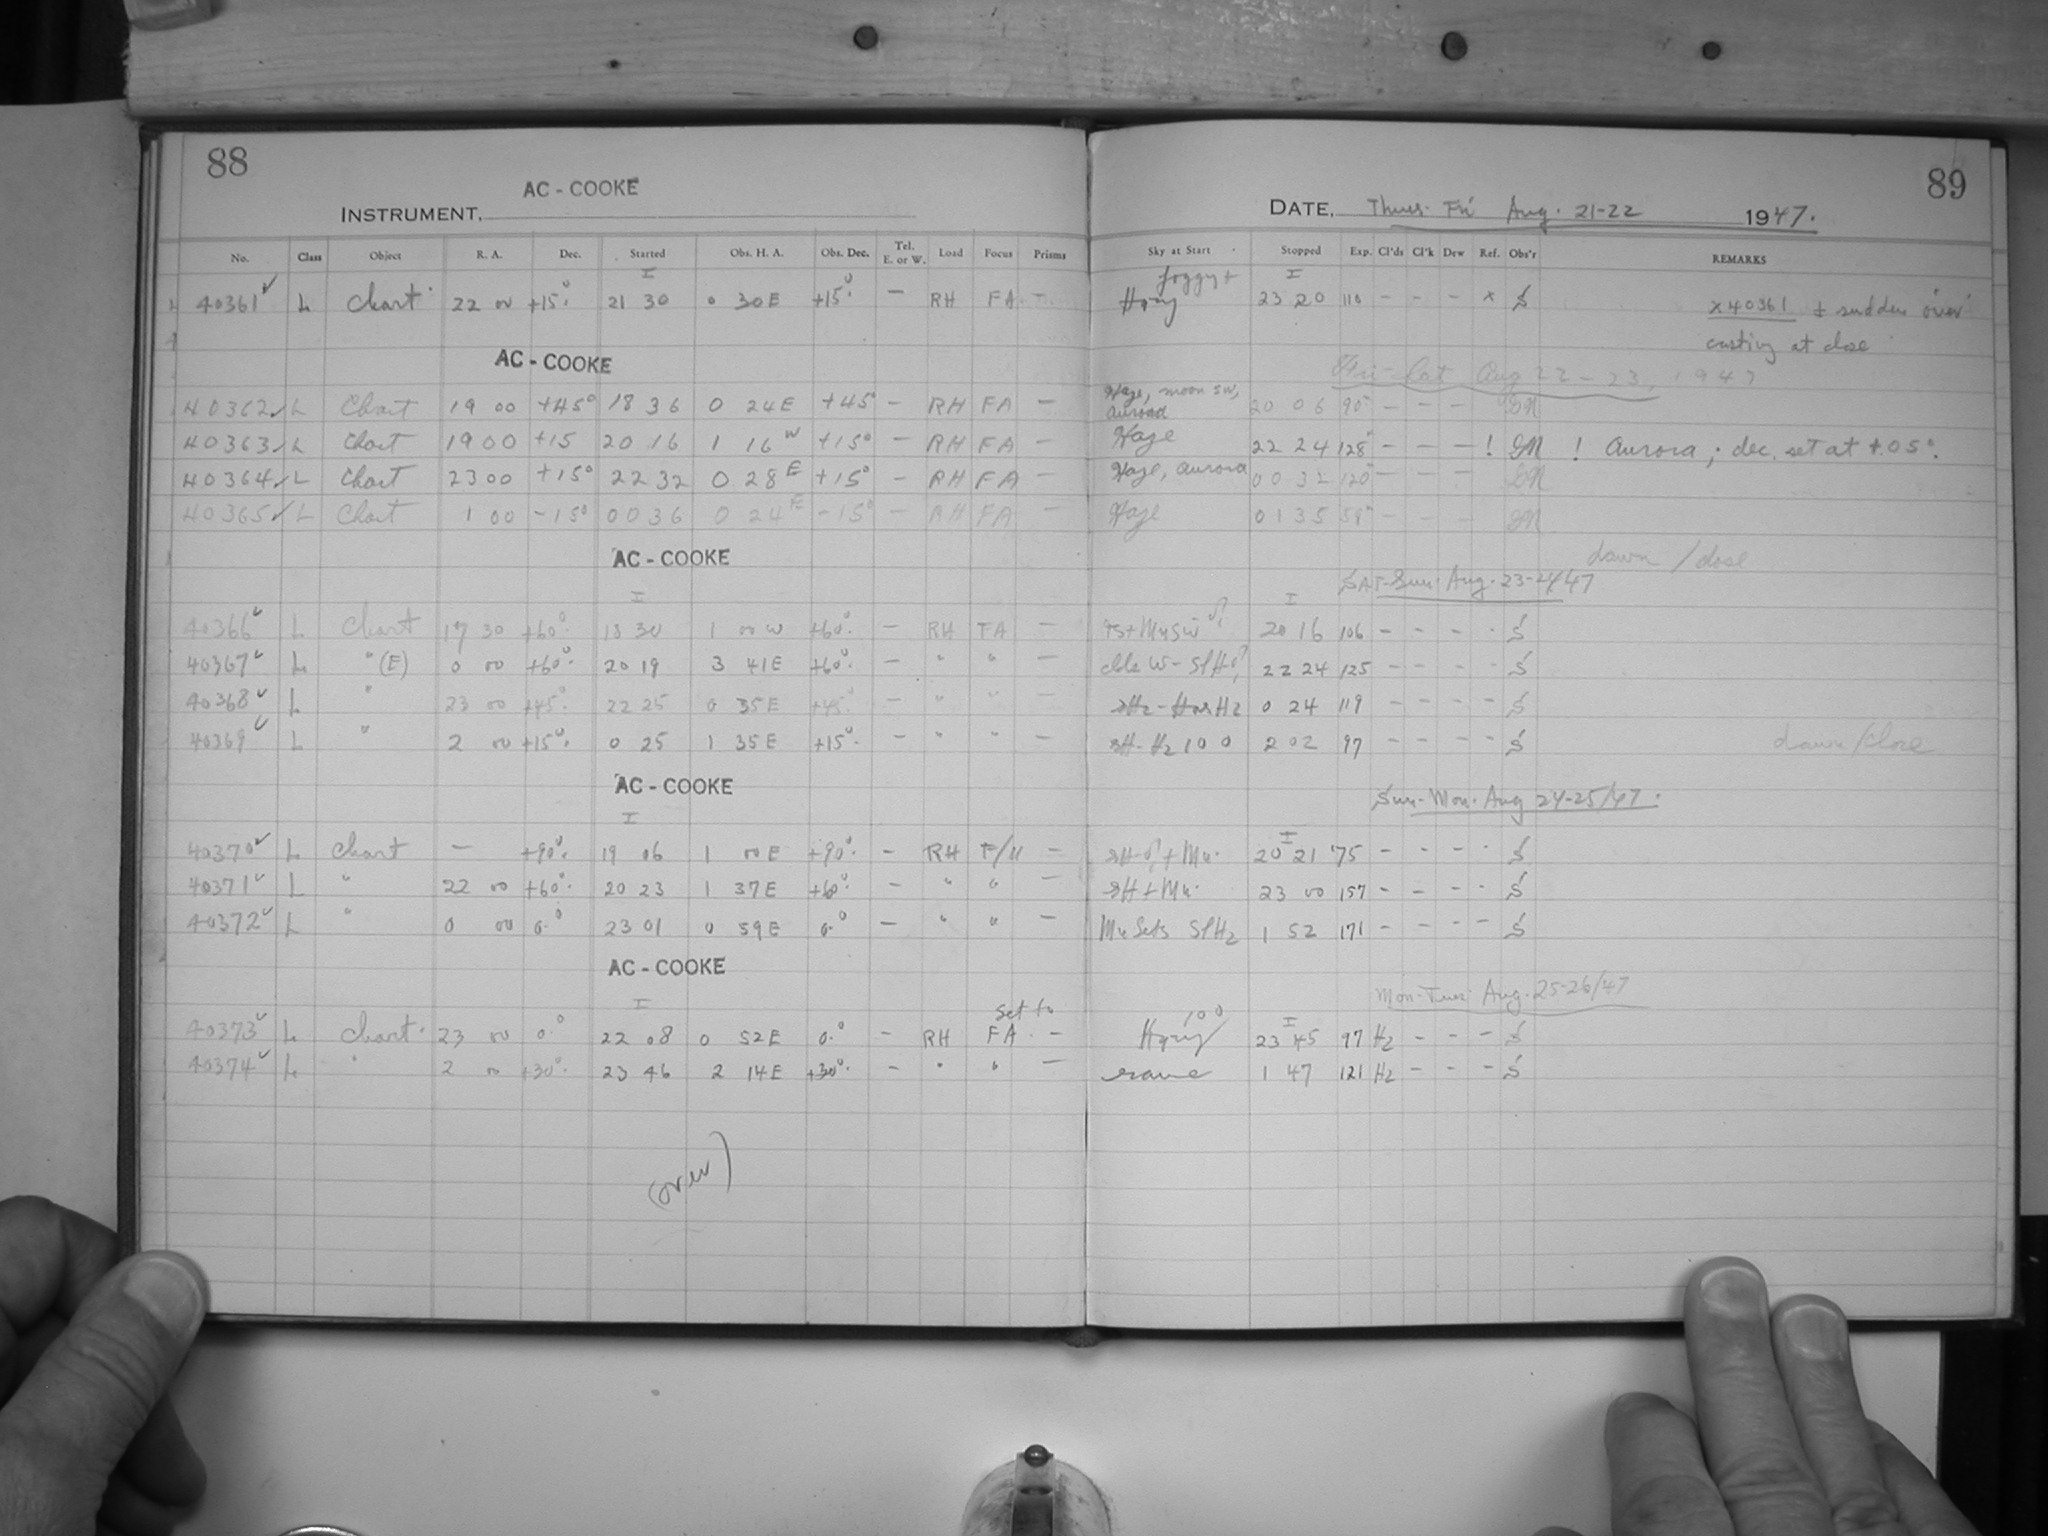 88
AC - COOKE
INSTRUMENT,
No. Class Object R. A. Dec. Started Obs. H. A. Obs. Dec. Tel. E. or W. Load Focus Prisms
I
40361 L Chart 22 00 +15° 21 30 0 30E +15° — RH FA —
AC - COOKE
40362 L Chart 19 00 +45° 18 36 0 24E +45° — RH FA —
40363 L Chart 19 00 +15 20 16 1 16W +15° — RH FA —
40364 L Chart 23 00 +15° 22 32 0 28E +15° — RH FA —
40365 L Chart 1 00 -15° 00 36 0 24E -15° — RH FA —
AC - COOKE
I
40366 L Chart 17 30 +60° 18 30 1 00 W +60° — RH FA —
40367 L " (E) 0 00 +60° 20 19 3 41E +60° — " " —
40368 L " 23 00 +45° 22 25 0 35E +45° — " " —
40369 L " 2 00 +15° 0 25 1 35E +15° — " " —
AC - COOKE
I
40370 L Chart — +90° 19 06 1 00E +90° — RH —
40371 L " 22 00 +60° 20 23 1 37E +60° — " " —
40372 L " 0 00 0° 23 01 0 59E 0° — " " —
AC - COOKE
I set to
40373 L Chart 23 00 0° 22 08 0 52E 0° — RH FA —
40374 L " 2 00 +30° 23 46 2 14E +30° — " " —
(over)
89
DATE, Thurs. Fri Aug. 21-22 1947.
Sky at Start Stopped Exp. Cl'ds Cl'k Dew Ref. Obs'r REMARKS
foggy + I
Hazy 23 20 110 — — — x S x40361 ± sudden over
casting at close
Fri-Sat Aug 22-23, 1947
Haze, moon SW,
Aurora 20 06 90 — — — GM
Haze 22 24 128 — — — ! GM ! Aurora; dec. set at +.05°.
Haze, aurora 00 32 120 — — — GM
Haze 01 35 59 — — — GM
dawn / close
Sat-Sun. Aug. 23-24/47
I
20 16 106 — — — S
22 24 125 — — — S
0 24 119 — — — — S
2 02 97 — — — — S dawn/close
Sun-Mon. Aug 24-25/47.
I
20 21 75 — — — S
23 00 157 — — — S
Mn Sets SlHz 1 52 171 — — — — S
Mon-Tues. Aug. 25-26/47
100 I
Hazy 23 45 97 Hz — — — S
same 1 47 121 Hz — — — S